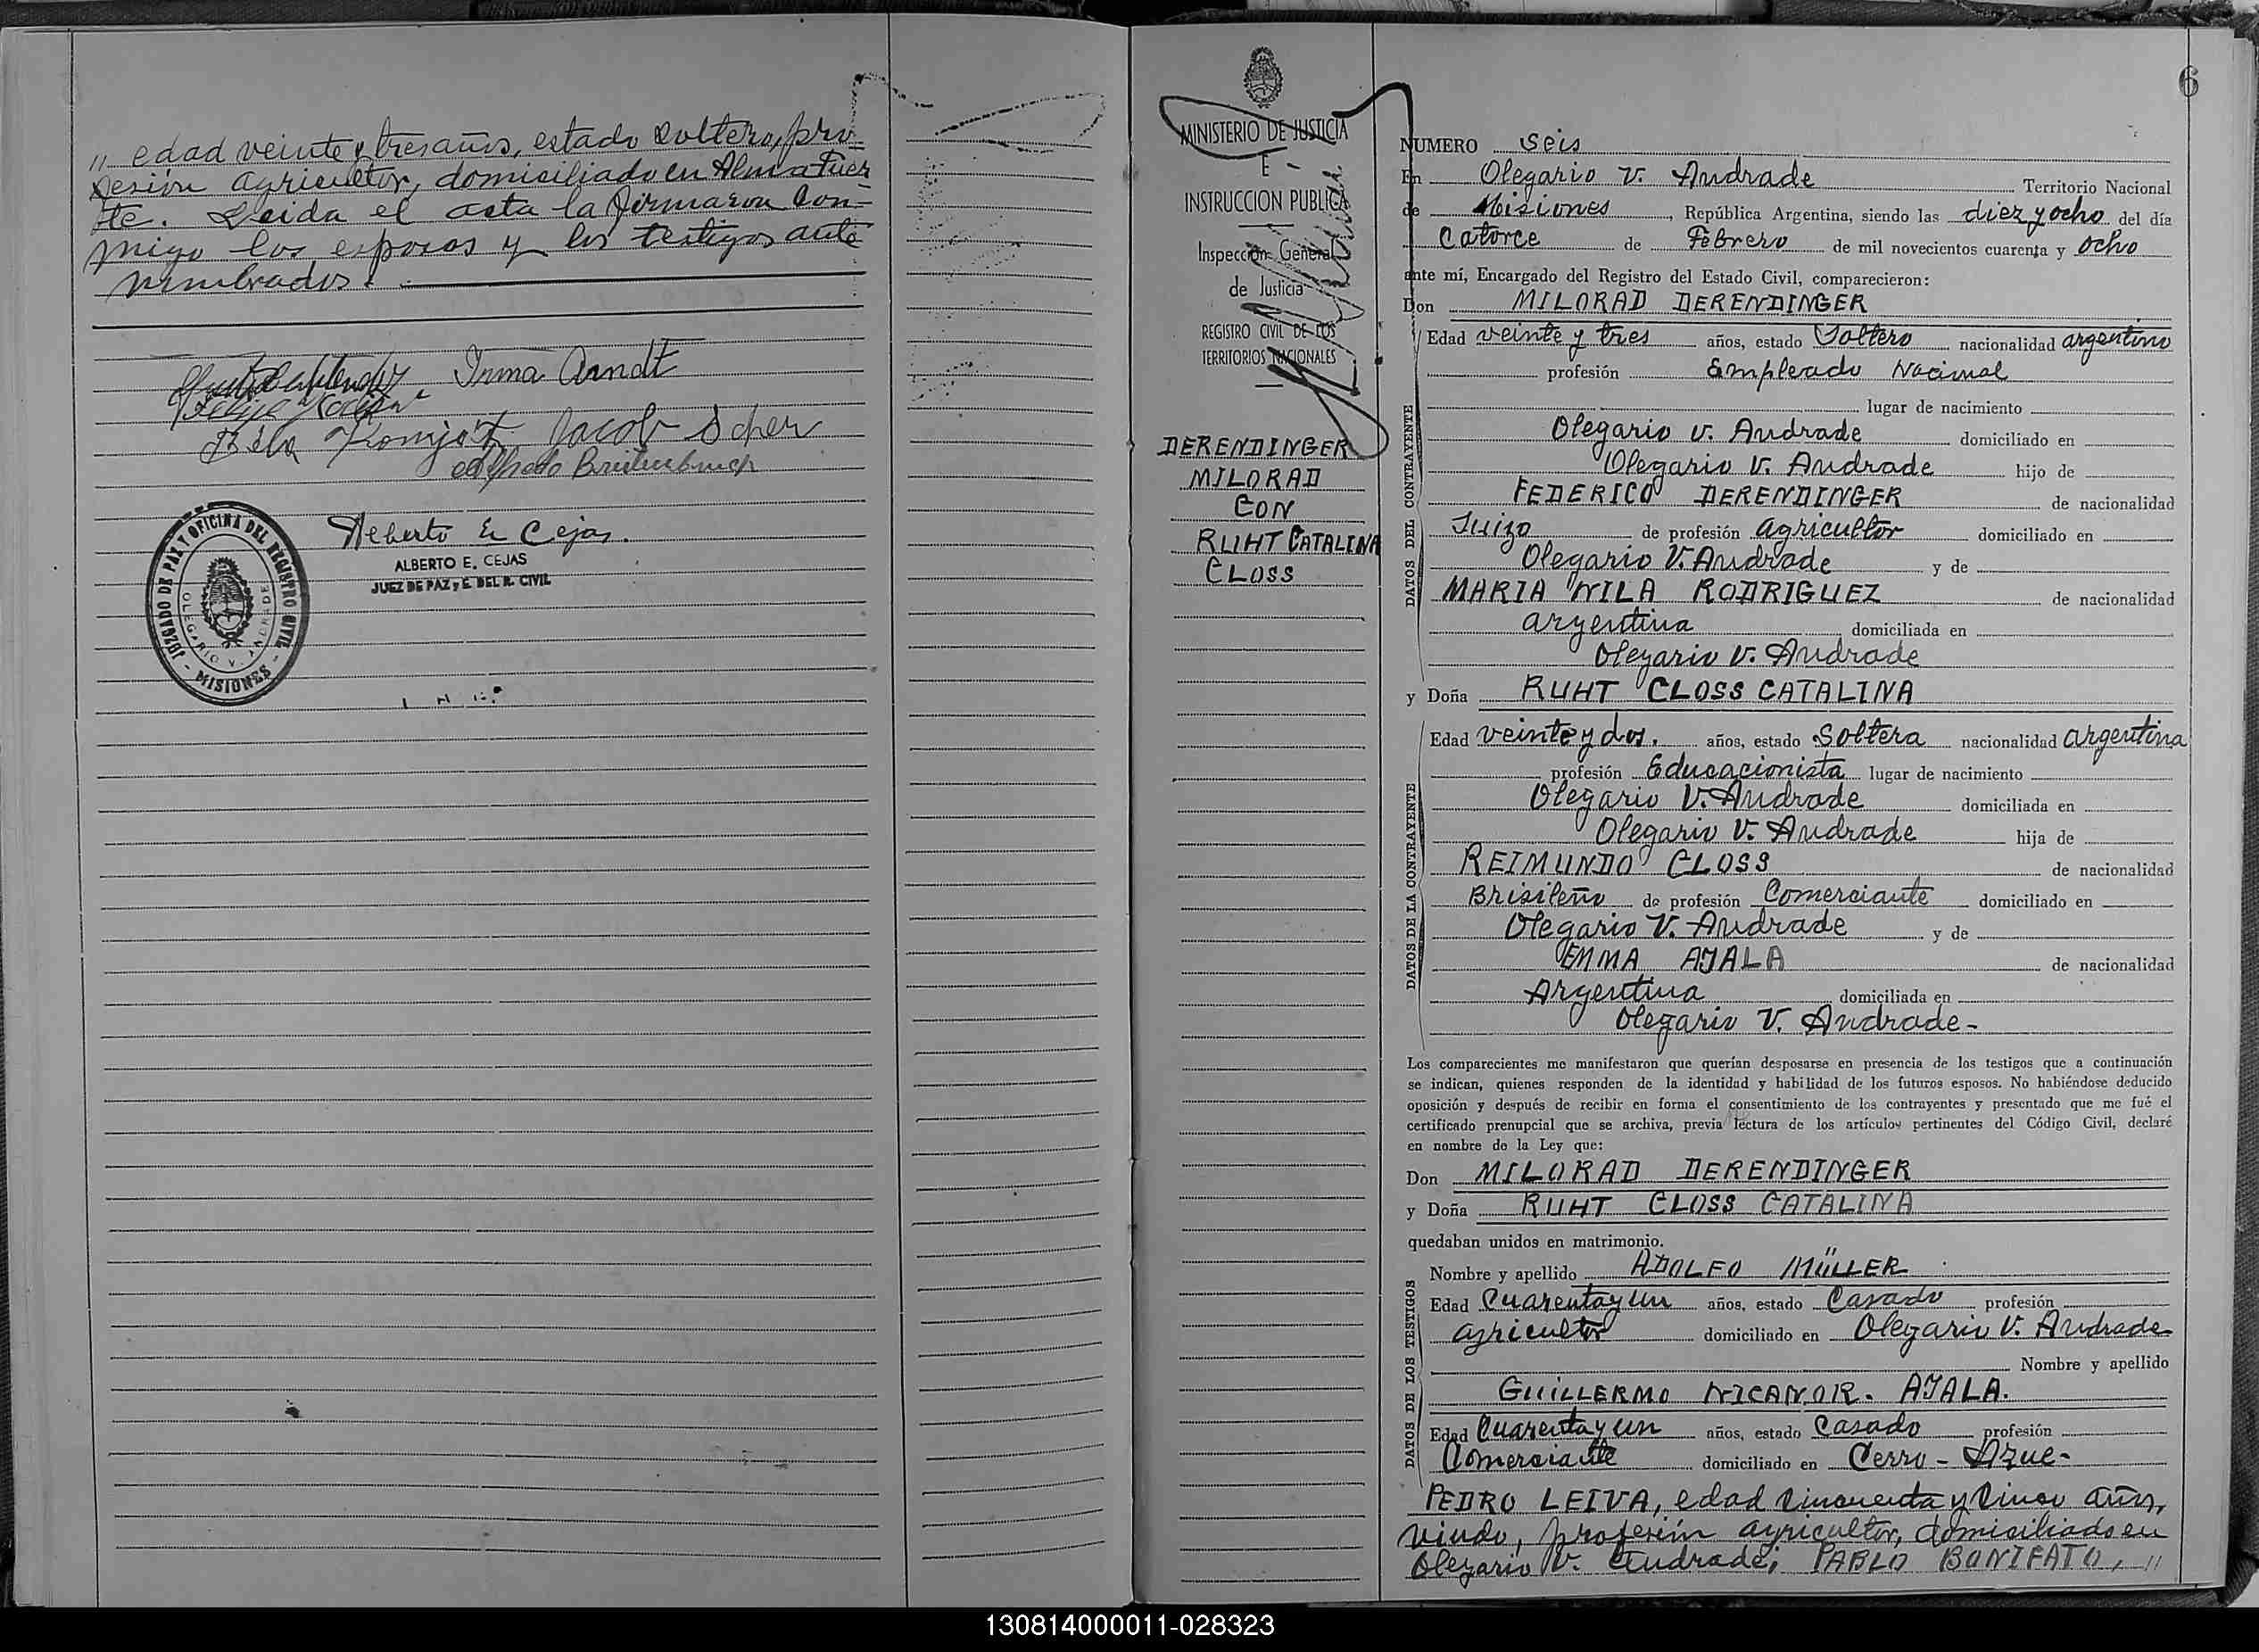 " edad veinte y tres años, estado soltero, pro-
fesión agricultor, domiciliado en Almafuer-
te. Leida el acta la firmaron con-
migo los esposos y los testigos ante
nombrados.
Irma Arndt
Felipe
Béla Jacob Scher
Alfredo Breitenbruch
JUZGADO DE PAZ Y OFICINA DEL REGISTRO CIVIL
OLEGARIO V. ANDRADE
- MISIONES -
Alberto E. Cejas.
ALBERTO E. CEJAS
JUEZ DE PAZ y E. DEL R. CIVIL
MINISTERIO DE JUSTICIA
E
INSTRUCCION PUBLICA
Inspección General
de Justicia
REGISTRO CIVIL DE LOS
TERRITORIOS NACIONALES
DERENDINGER
MILORAD
CON
RUHT CATALINA
CLOSS
6
NUMERO seis
En Olegario V. Andrade Territorio Nacional
de Misiones, República Argentina, siendo las diez y ocho del día
Catorce de Febrero de mil novecientos cuarenta y ocho
ante mí, Encargado del Registro del Estado Civil, comparecieron:
Don MILORAD DERENDINGER
DATOS DEL CONTRAYENTE
Edad veinte y tres años, estado Soltero nacionalidad argentino
profesión Empleado Nacional
lugar de nacimiento
Olegario V. Andrade domiciliado en
Olegario V. Andrade hijo de
FEDERICO DERENDINGER de nacionalidad
Suizo de profesión agricultor domiciliado en
Olegario V. Andrade y de
MARIA NILA RODRIGUEZ de nacionalidad
argentina domiciliada en
Olegario V. Andrade
y Doña RUHT CLOSS CATALINA
DATOS DE LA CONTRAYENTE
Edad veinte y dos. años, estado Soltera nacionalidad argentina
profesión Educacionista lugar de nacimiento
Olegario V. Andrade domiciliada en
Olegario V. Andrade hija de
REIMUNDO CLOSS de nacionalidad
Brisileño de profesión Comerciante domiciliado en
Olegario V. Andrade y de
EMMA AJALA de nacionalidad
Argentina domiciliada en
Olegario V. Andrade -
Los comparecientes me manifestaron que querían desposarse en presencia de los testigos que a continuación
se indican, quienes responden de la identidad y habilidad de los futuros esposos. No habiéndose deducido
oposición y después de recibir en forma el consentimiento de los contrayentes y presentado que me fué el
certificado prenupcial que se archiva, previa lectura de los artículos pertinentes del Código Civil, declaré
en nombre de la Ley que:
Don MILORAD DERENDINGER
y Doña RUHT CLOSS CATALINA
quedaban unidos en matrimonio.
DATOS DE LOS TESTIGOS
Nombre y apellido ADOLFO MÜLLER
Edad Cuarenta y un años, estado Casado profesión
agricultor domiciliado en Olegario V. Andrade
Nombre y apellido
GUILLERMO NICANOR. AJALA.
Edad Cuarenta y un años, estado Casado profesión
Comerciante domiciliado en Cerro - Azul -
PEDRO LEIVA, edad cincuenta y cinco años,
viudo, profesión agricultor, domiciliado en
Olegario V. Andrade; PABLO BONIFATO, "
130814000011-028323